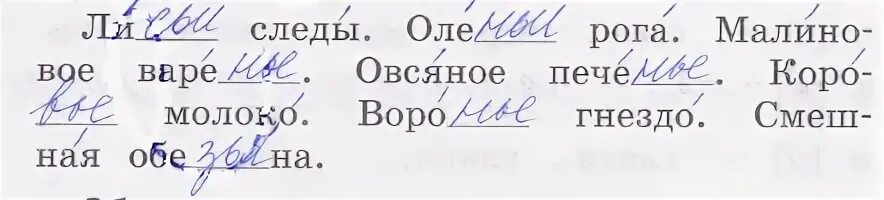 Ли́сьи следы́. Оле́ньи рога́. Мали́но-
вое варе́нье. Овся́ное пече́нье. Коро́-
вье молоко́. Воро́нье гнездо́. Смеш-
на́я обезья́на.